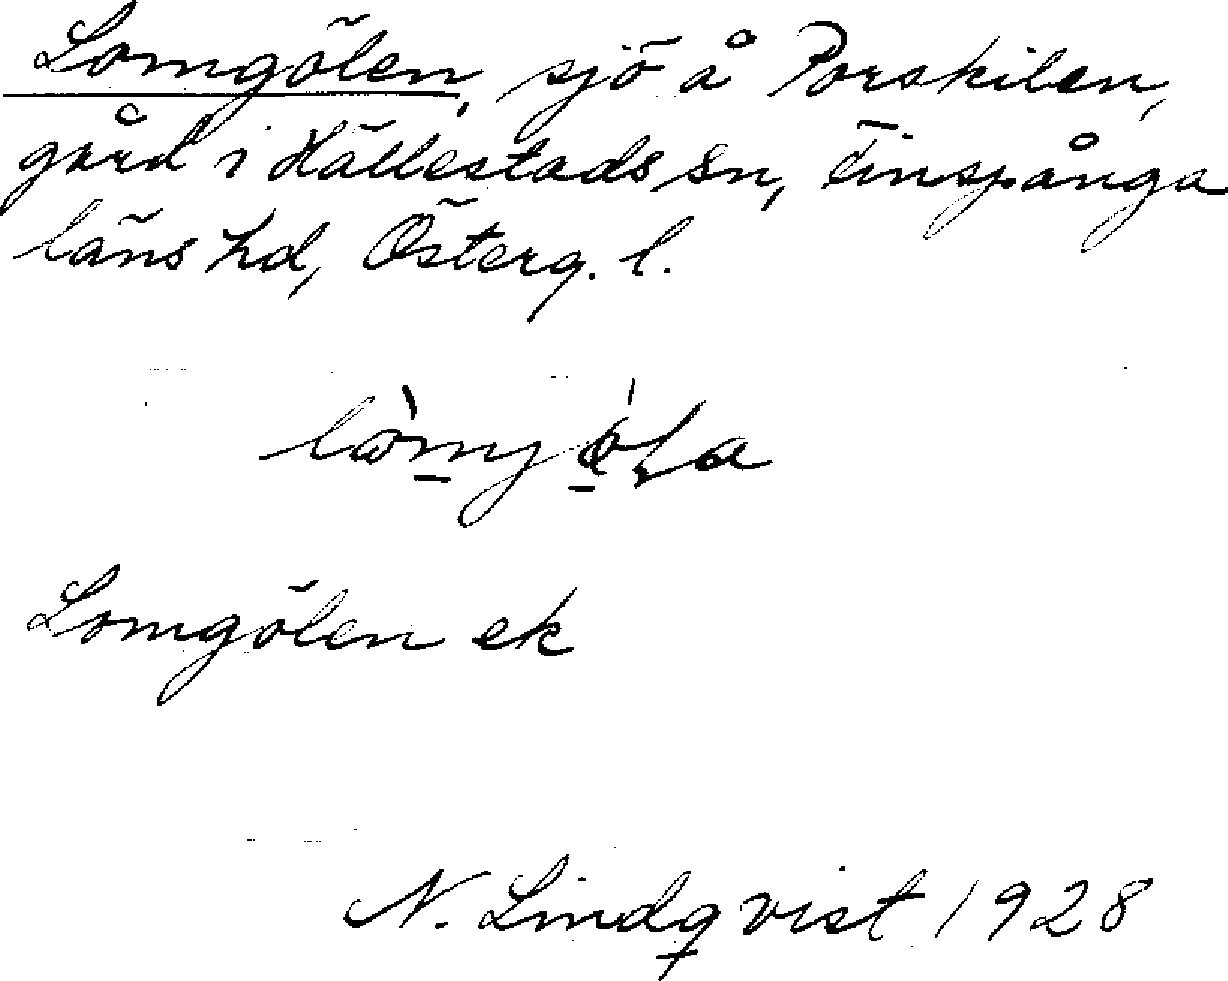 Lomgölen, sjö å Porskilen,
gård i Hällestads sn, Finspånga
läns hd, Österg. l.
Lomgölen ek
N. Lindqvist 1928